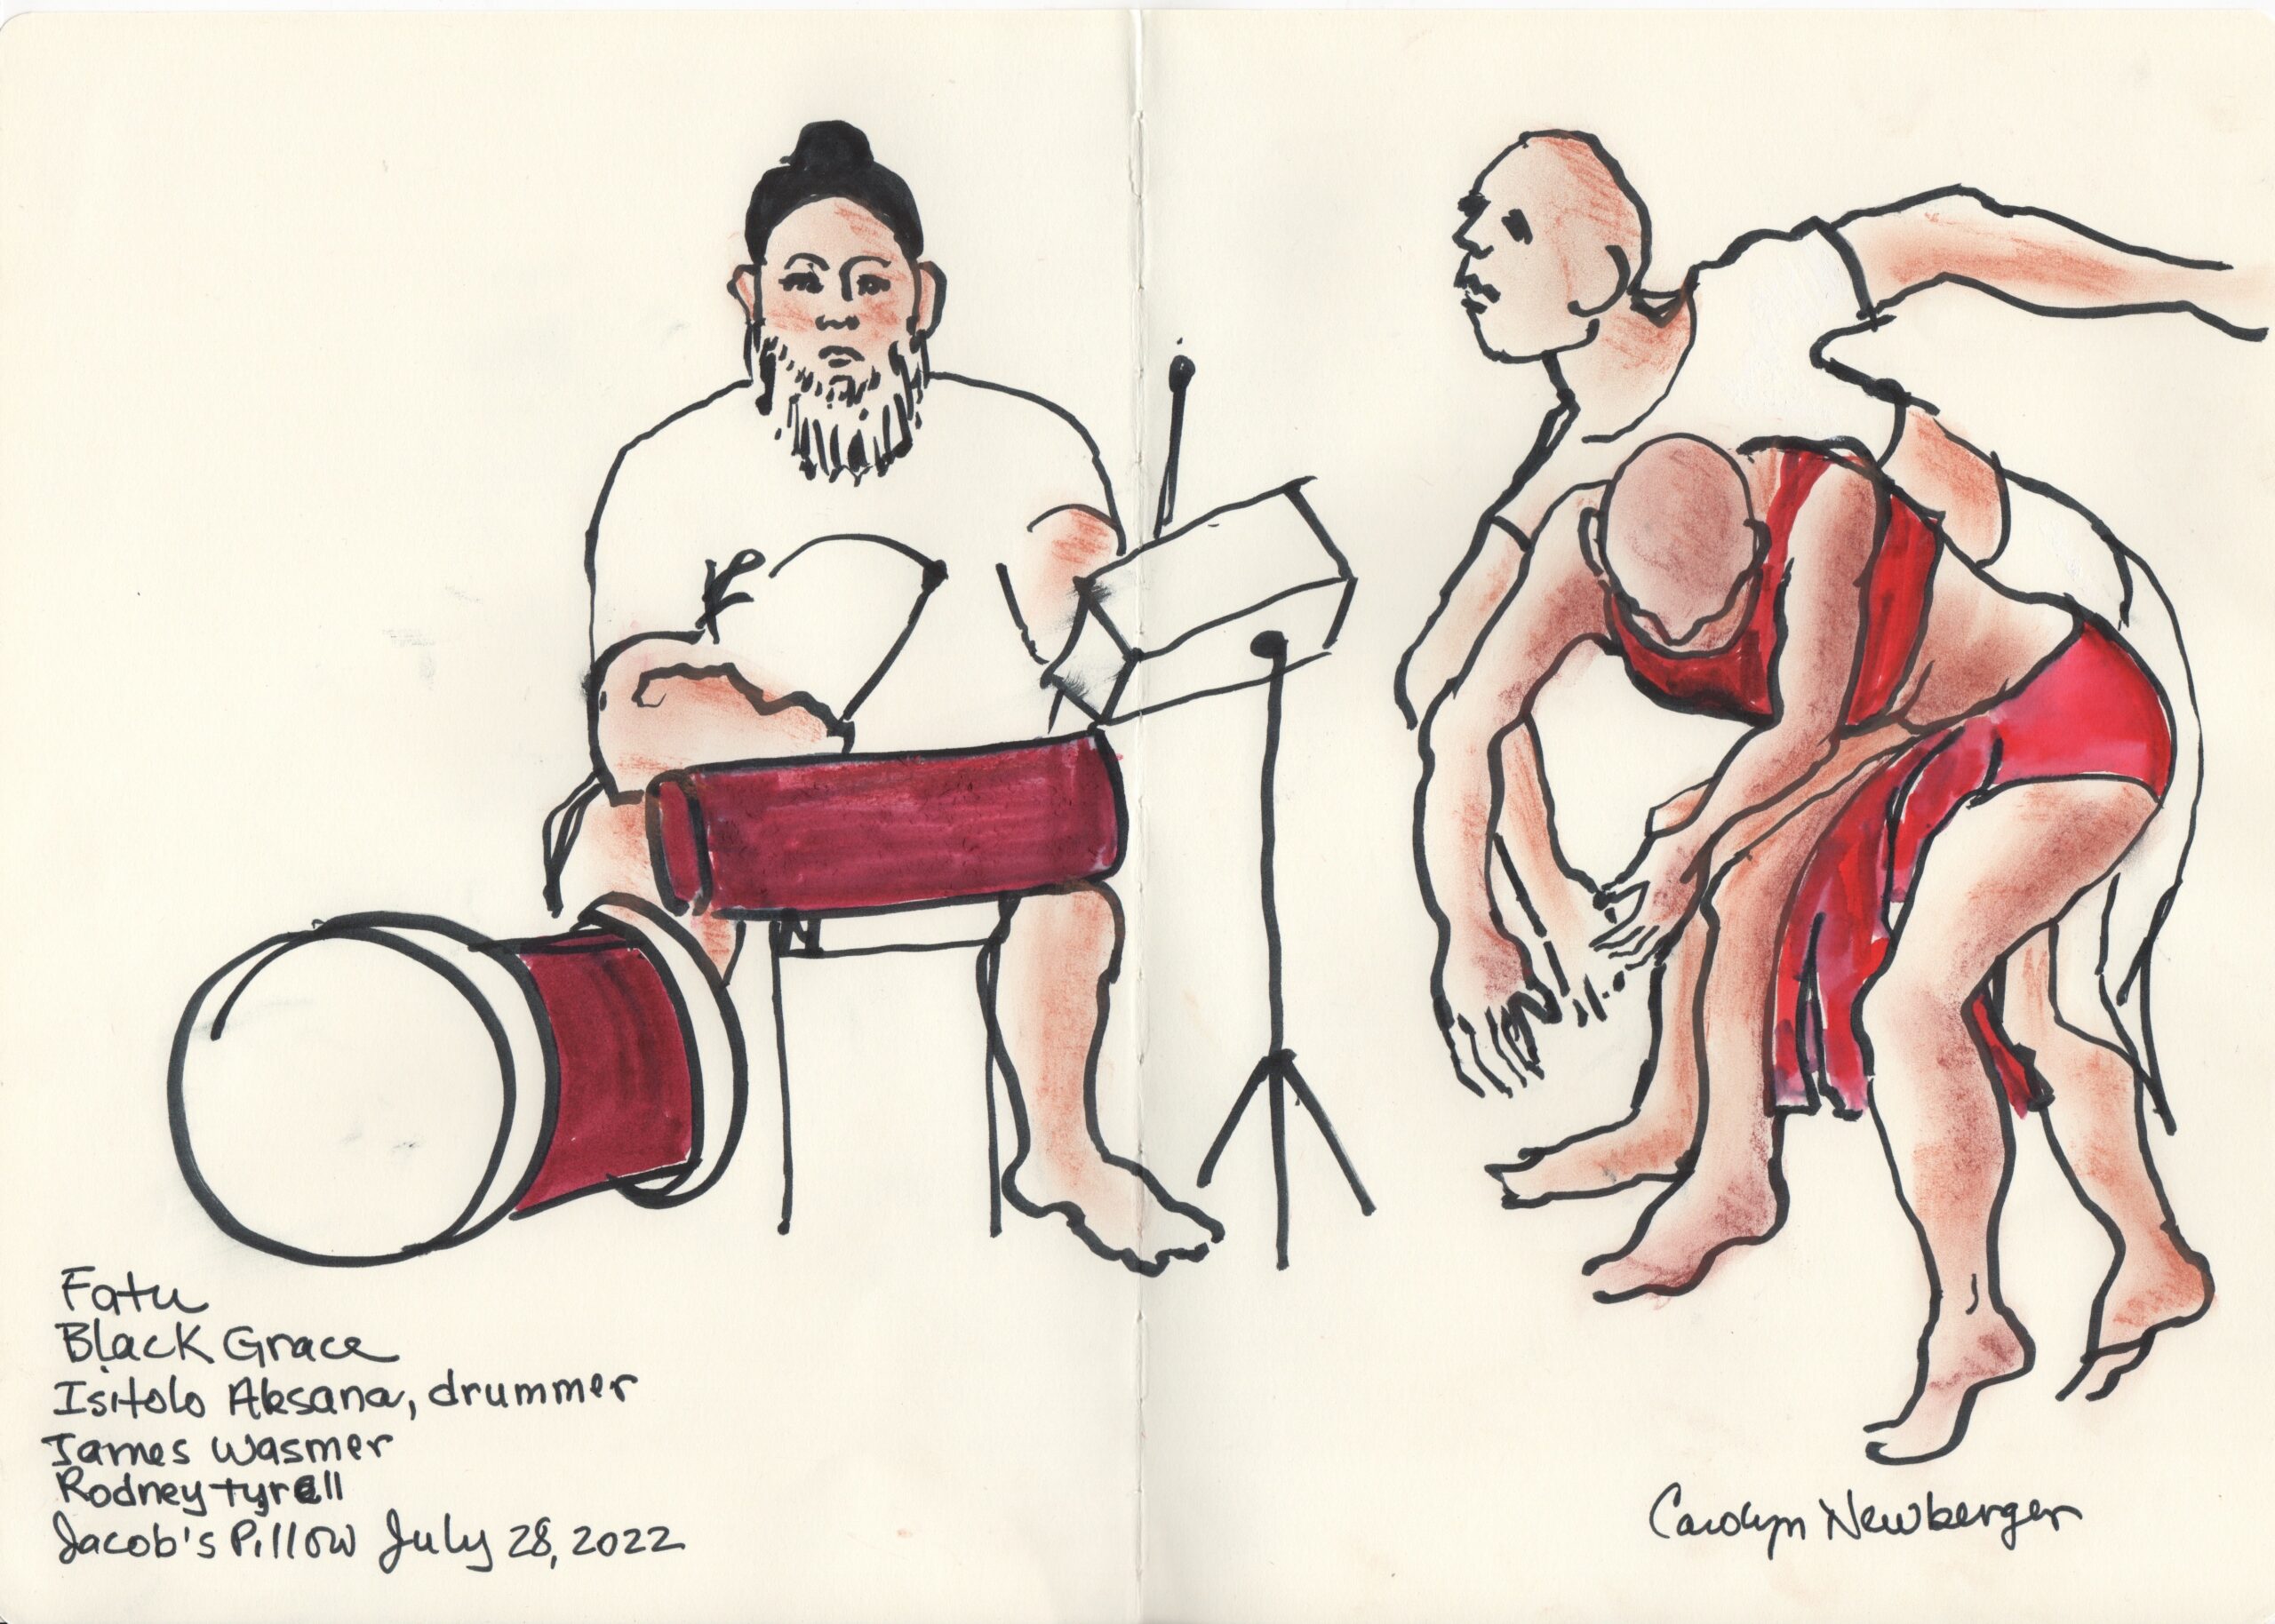 Fatu
Black Grace
Isitolo Alesana, drummer
James Wasmer
Rodney tyrell
Jacob's Pillow July 28, 2022
Carolyn Newberger